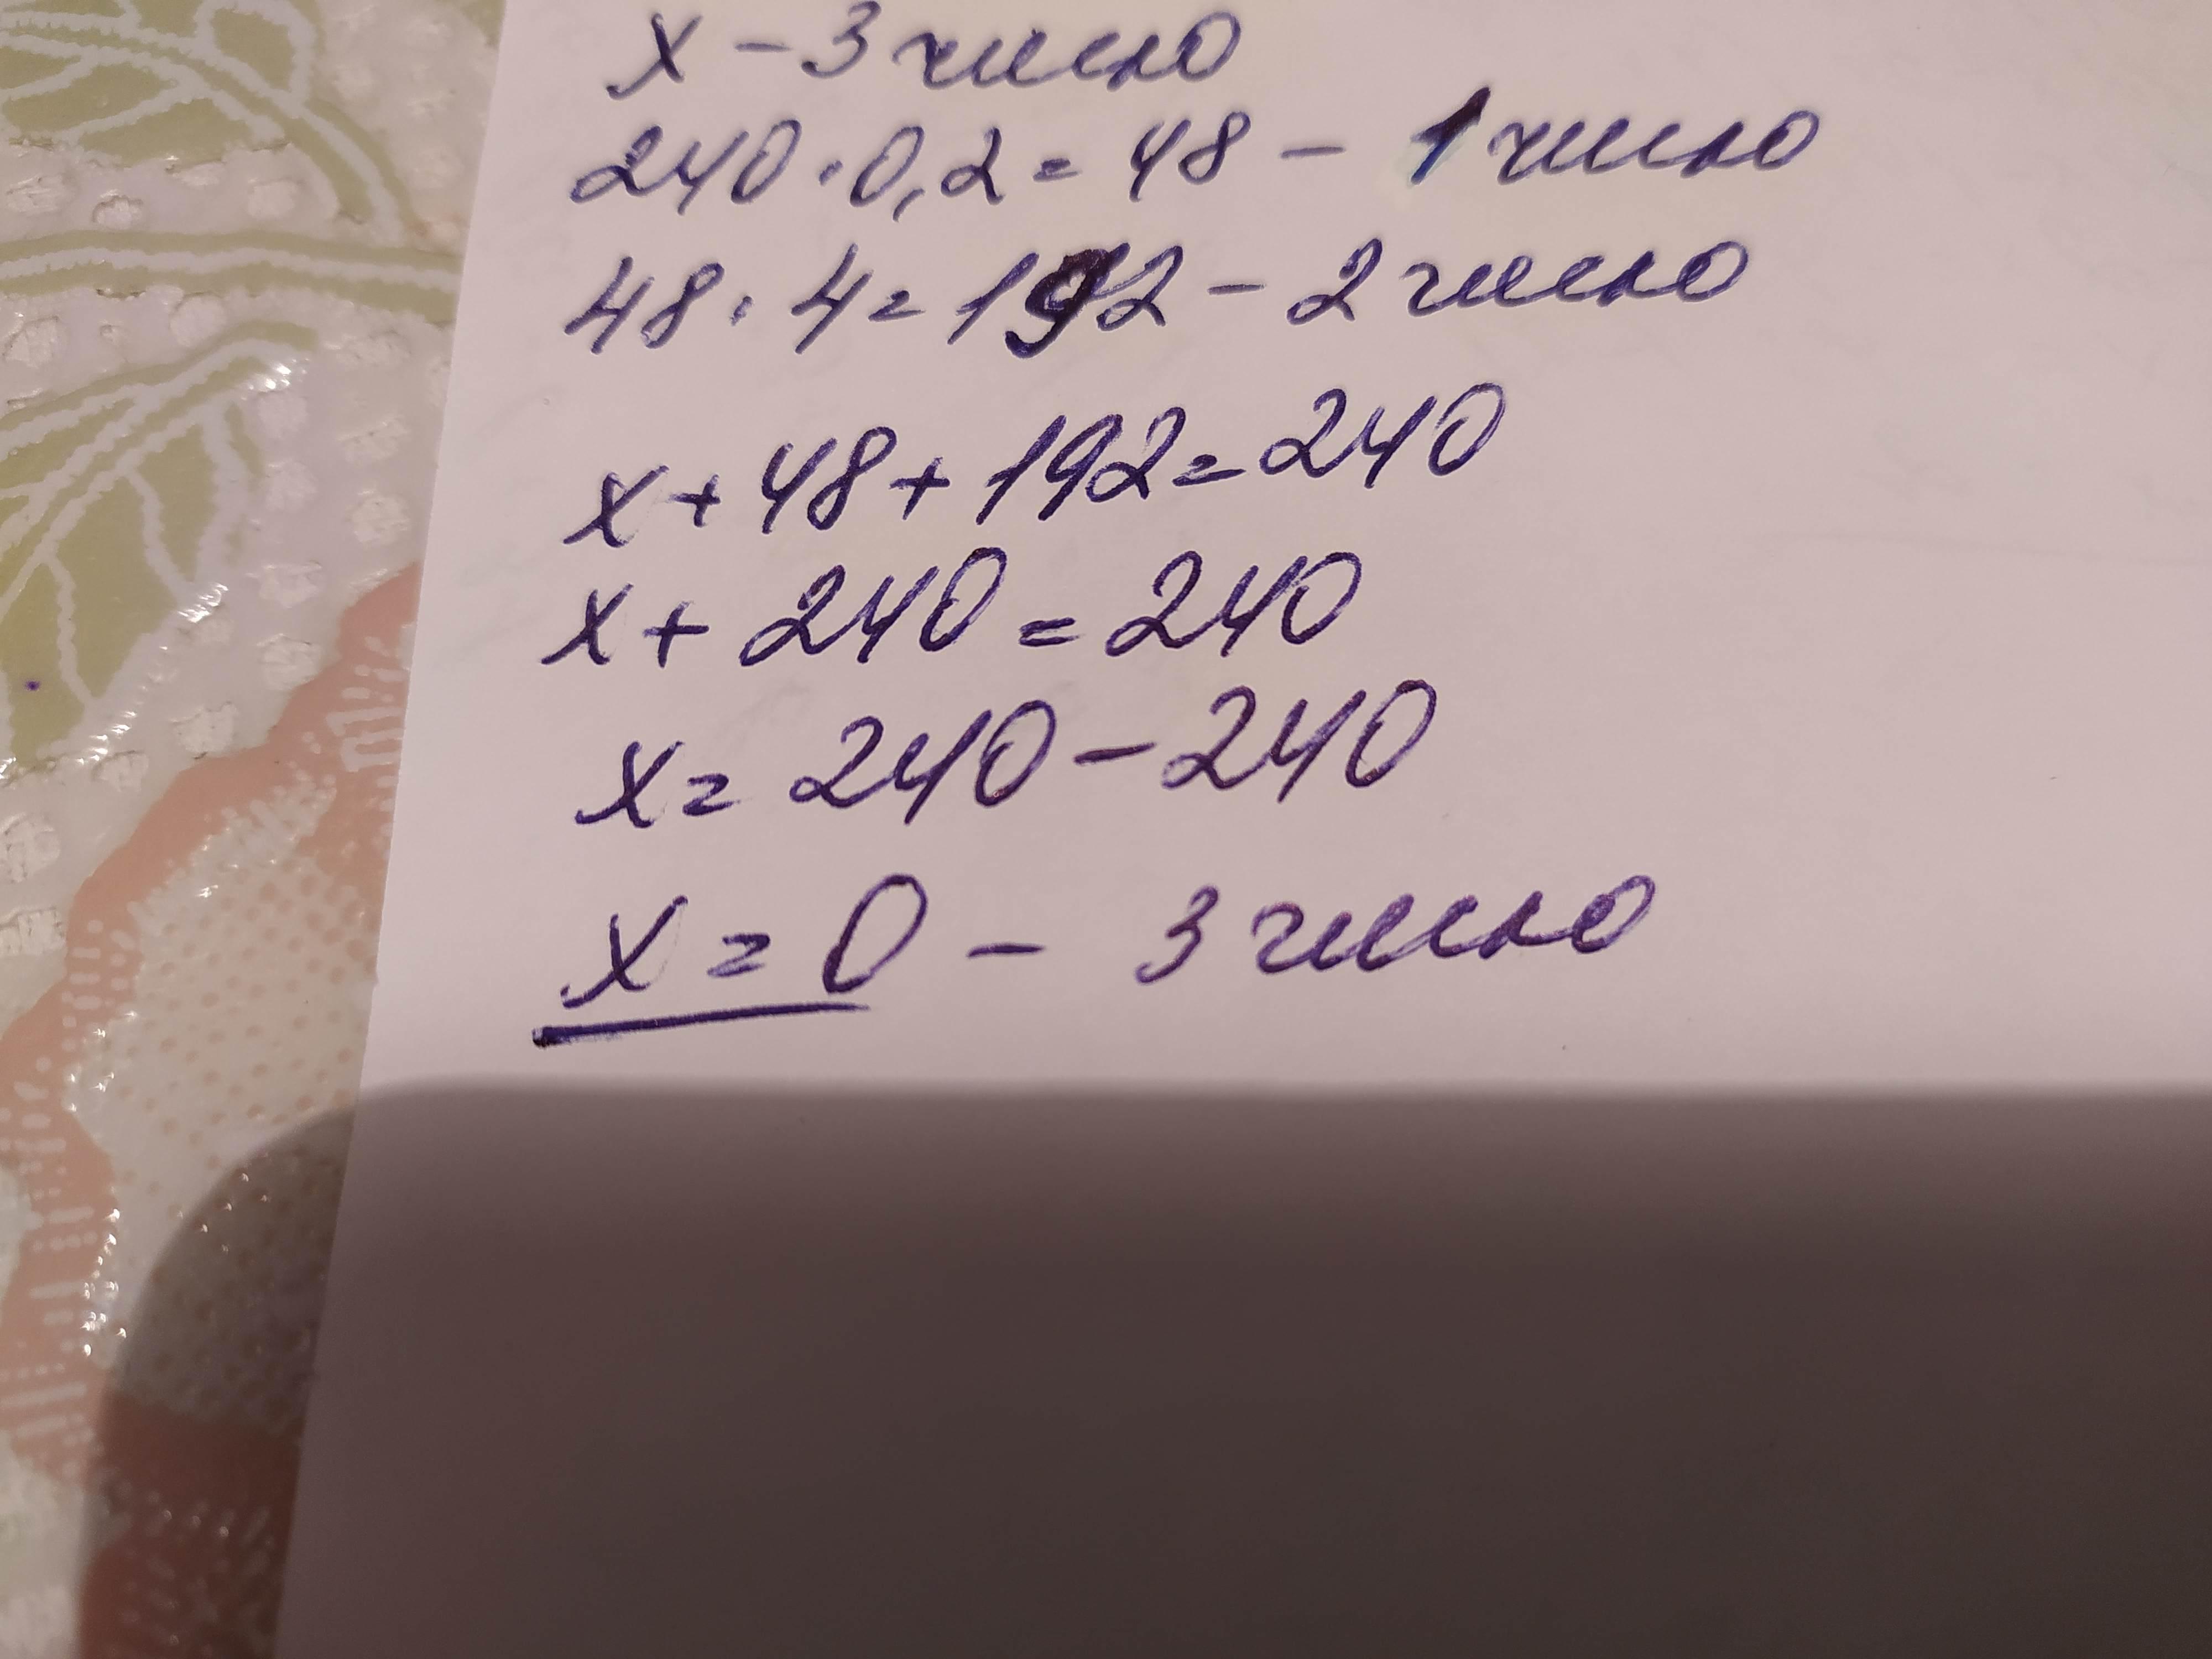 x - 3 число
240 · 0,2 = 48 - 1 число
48 · 4 = 192 - 2 число
x + 48 + 192 = 240
x + 240 = 240
x = 240 - 240
x = 0 - 3 число